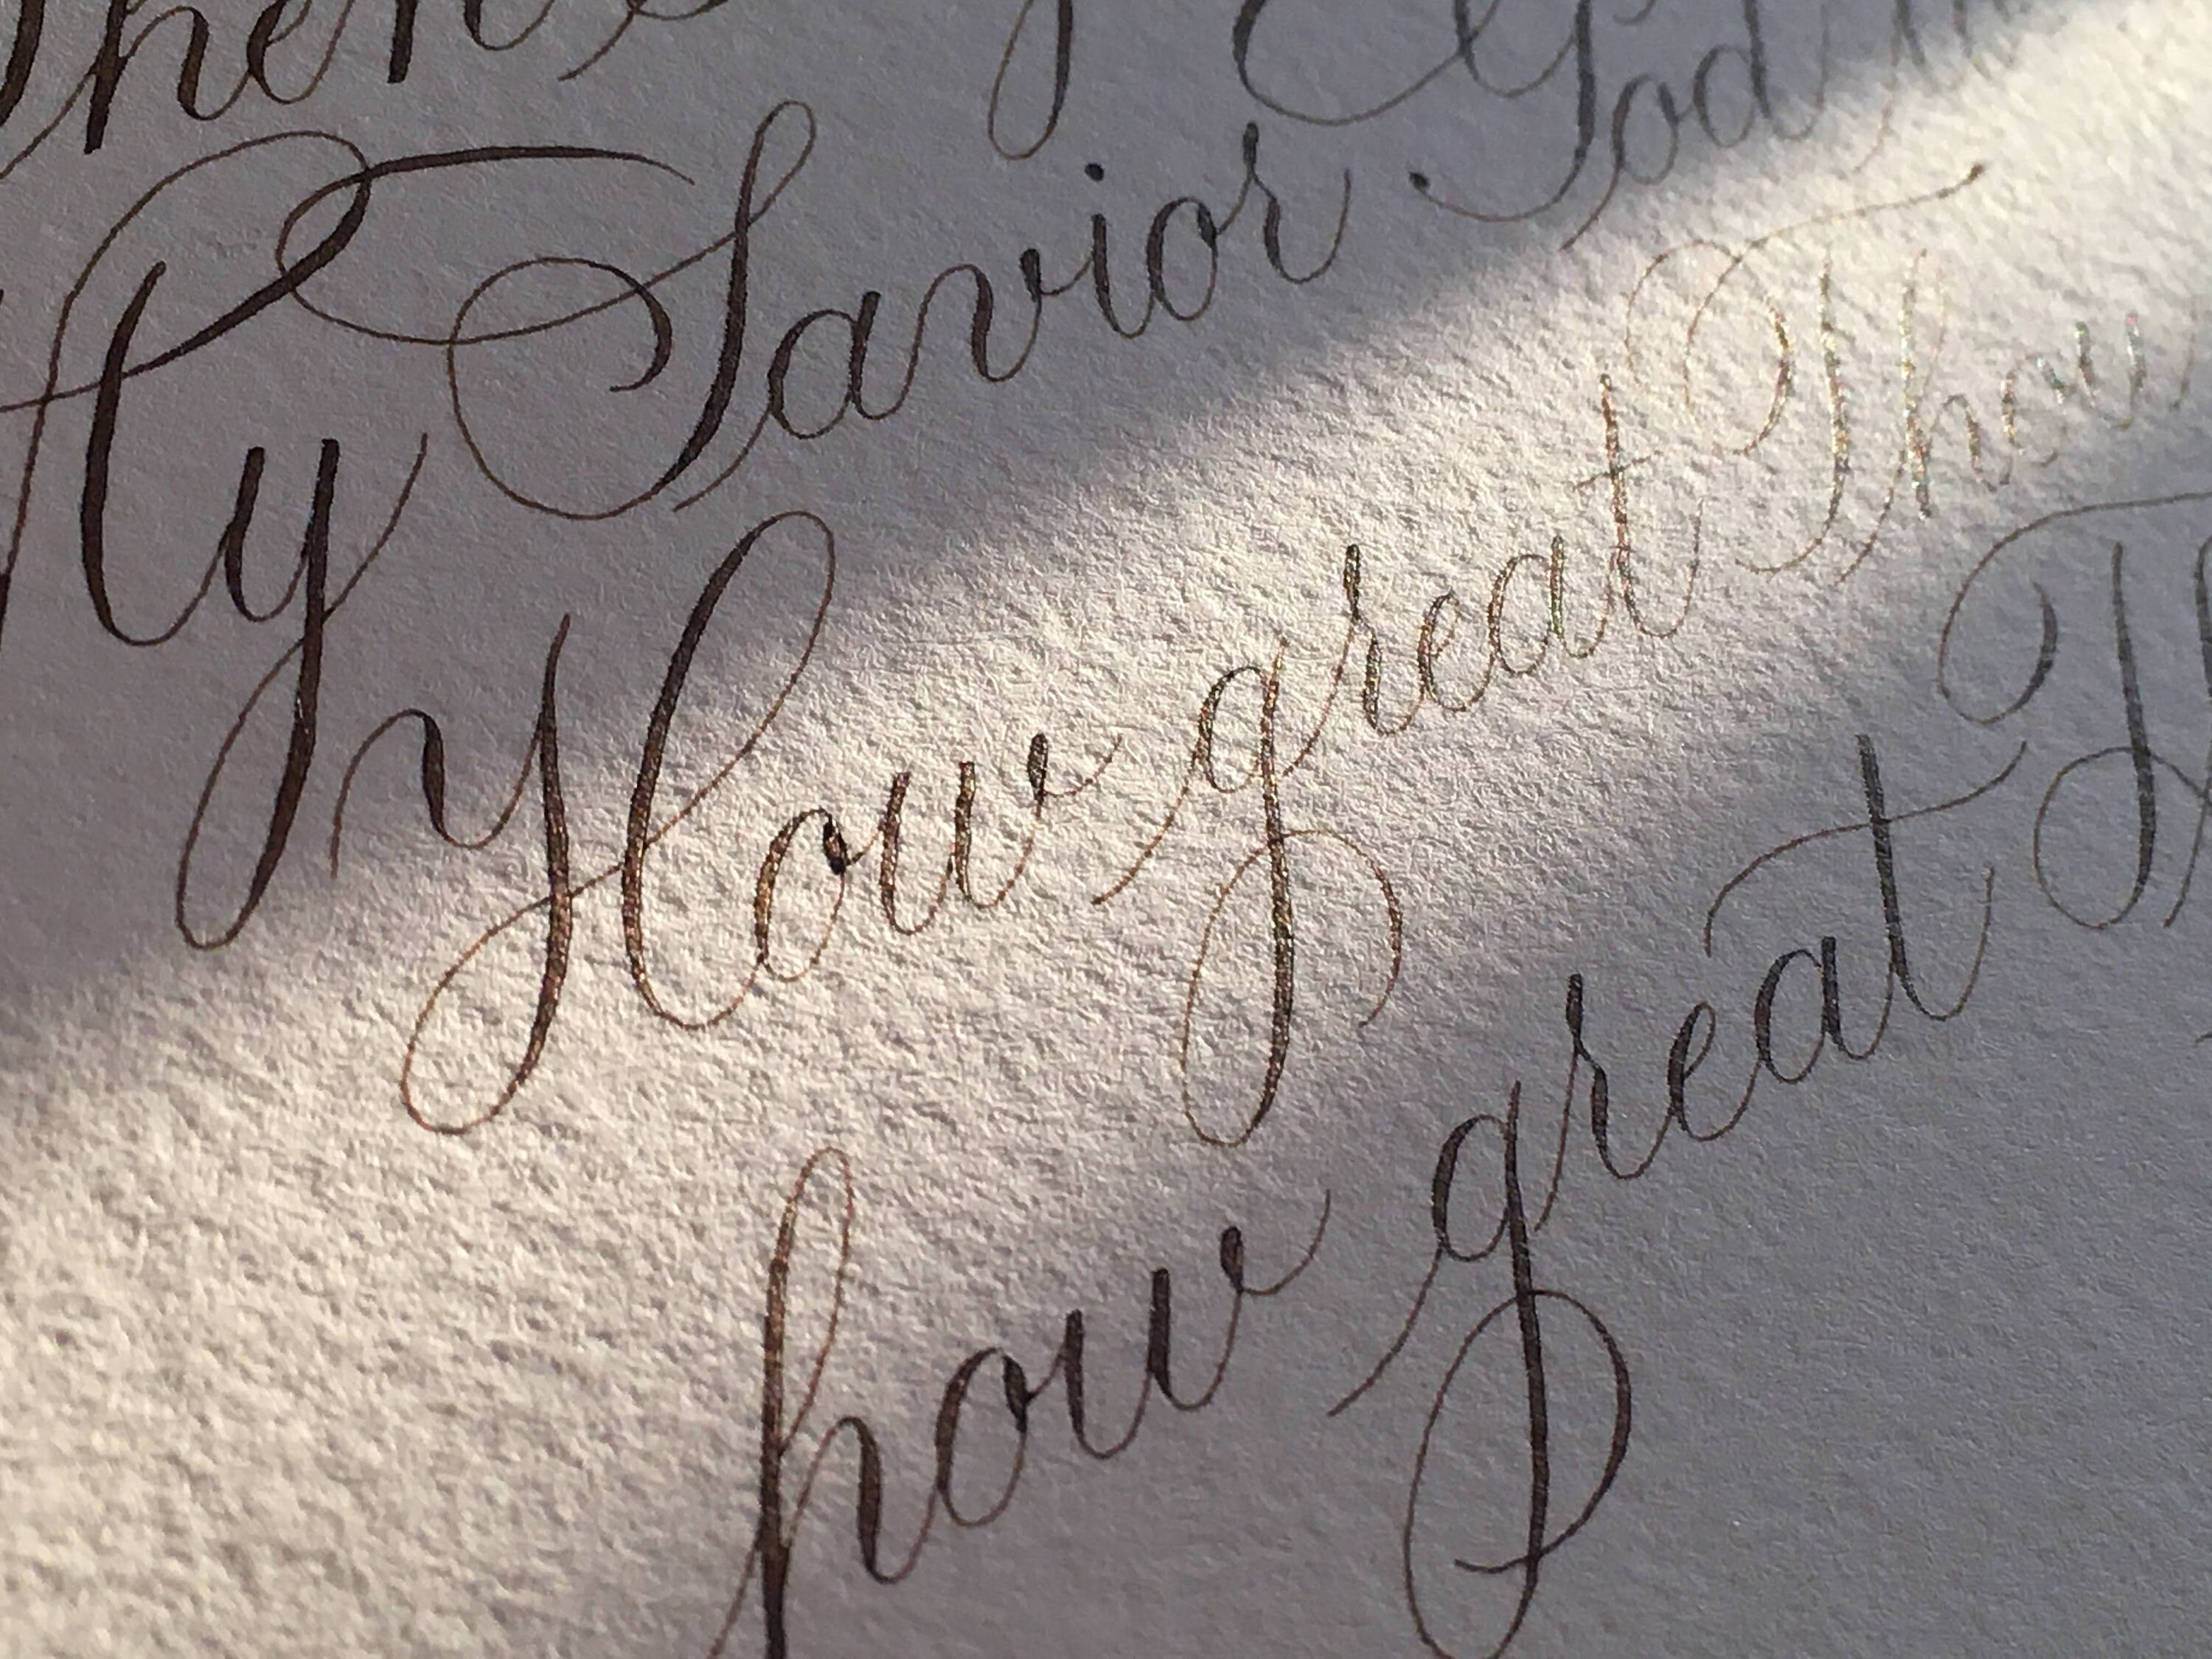 Then
My Savior God
How great Thou
how great